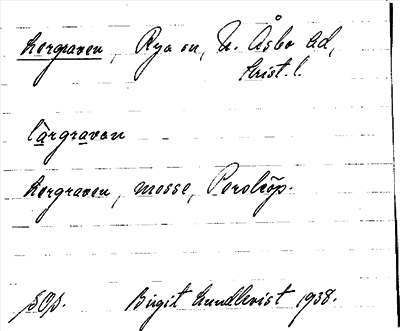 Lergraven, Rya sn, N. Åsbo hd,
Krist. l.
lärgravan
Lergraven, mosse, Perstorp.
Birgit Lundkvist 1938.